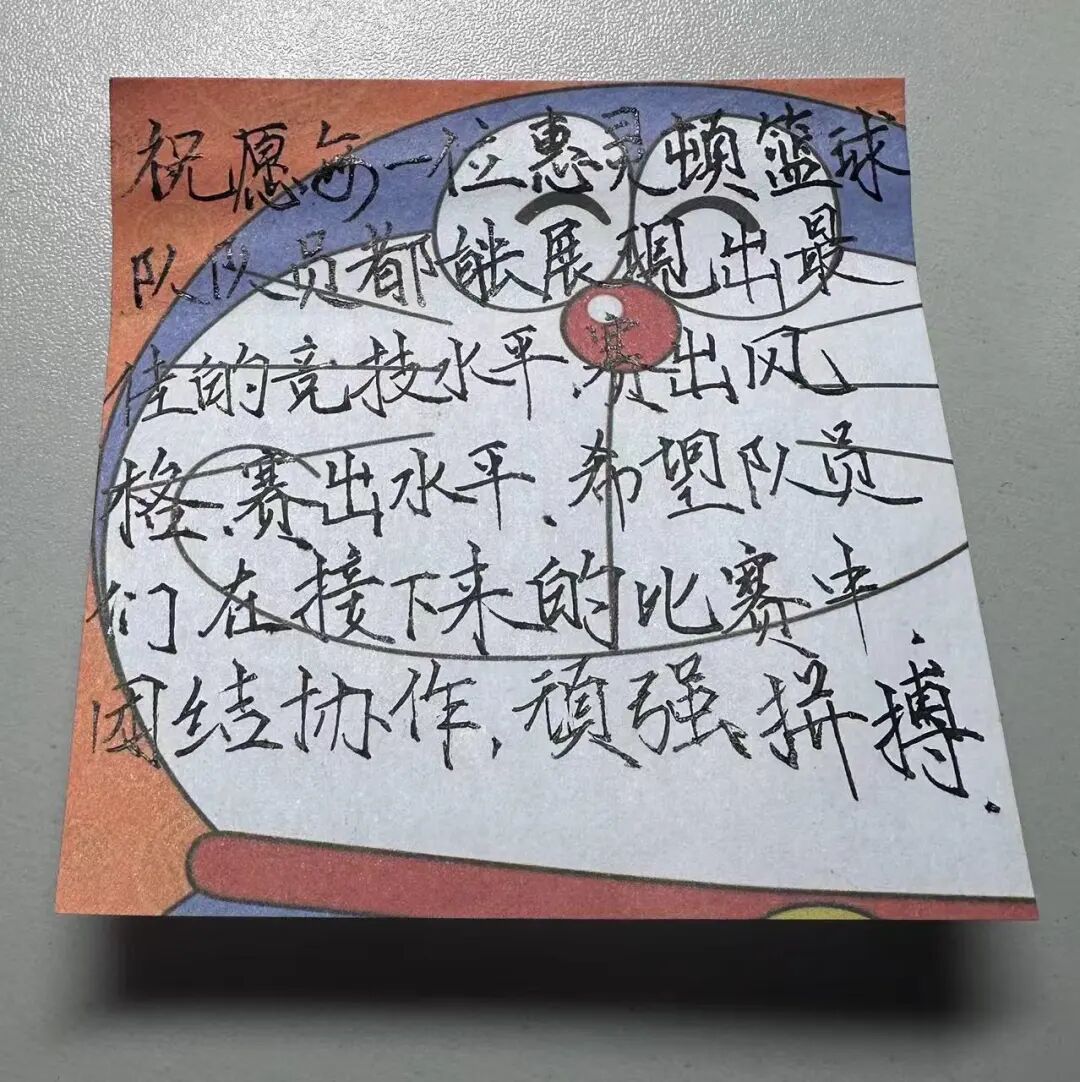 祝愿每一位惠灵顿篮球
队队员都能展现出最
佳的竞技水平.赛出风
格.赛出水平.希望队员
们在接下来的比赛中.
团结协作.顽强拼搏.